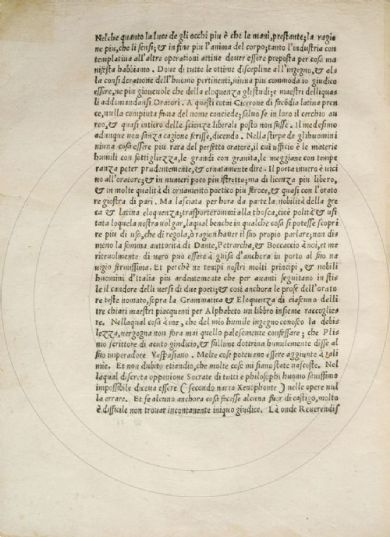 Nelche quanto la luce de gli occhi piu è che le mani, prestante; la ragio
ne piu, che li sensi; & in fine piu l'anima del corpo; tanto l'industria con
templativa all'altre operationi attive dover essere proposta per cosa ma
nifesta habbiamo. Dove di tutte le ottime discipline all'ingegno, & ala
la consideratione dell'huomo pertinenti, niuna piu commoda io giudico
essere, ne piu giovevole che della eloquenza gli studi; e maestri delli quali
li addimandansi Oratori. A questi coui Cicerone di facôdia latina pren
ce, nulla compiuta
finza del nome concede; salvo se in loro il cerchio au
reo, & quasi intiero delle scienze liberali posto non fusse. Il medesimo
adunque non senza cagione scrisse, dicendo. Nella stirpe de gli huomini
niuna cosa esser piu rara del perfetto oratore, il cui ufficio è le materie
humili con sottigliezza, le grandi con gravità, le meggiane con tempe
ranza poter prudentemente, & ornatamente dire. Il poeta invero è vici
no all'oratore; & in numeri poco piu ristretto; ma di licenza piu libero,
& in molte qualità di ornamento poetico piu feroce, & quasi con l'orato
re giostra di pari. Ma lasciata per hora da parte la nobilità della gre
ca & latina eloquenza; trasporteromi alla thosca, cioè polita & usi
tata loquela nostra volgar, laqual benche in qualche cosa si potesse scopri
re piu di uso, che di regola, o ragion haver il suo proprio parlare; non di
meno la somma auttorità di Dante, Petrarcha, & Boccaccio à noi, et me
ritevolmente di vero può essere à guisa d'anchora in porto al suo na
vigio fermissima. Et perchè ne tempi nostri molti prencipi, & nobili
huomini d'Italia piu ardentemente che per avanti seguitano in sti
le il candore delli versi di due poeti; & così anchora le prose dell'orato
re teste nomato, sopra la Grammatica & Eloquenza di ciascuno delli
tre chiari maestri piacquemi per Alphabeto un libro insieme raccogliere
re. Nellaqual cosa à me, che del mio humile ingegno conosco la debis
lezza, vergogna non fora mai quello palesemente confessare; che Pli
nio scrittore di acuto giudicio, & sublime dottrina humilmente disse al
suo imperadore Vespasiano. Molte cose potevano essere aggiunte à tali
mie. Et non dubito etiandio, che molte cose mi siano state nascoste. Nel
laqual discreta oppenione Socrate di tutti e philosophi huomo savissimo
impossibile diceva essere (secondo narra Xenophonte) nelle opere nul
la errare. Et se alcuno anchora cosa facesse alcuna fuor di castigo, molto
è difficile non trovar incontanente iniquo giudice. Là onde Reverendis